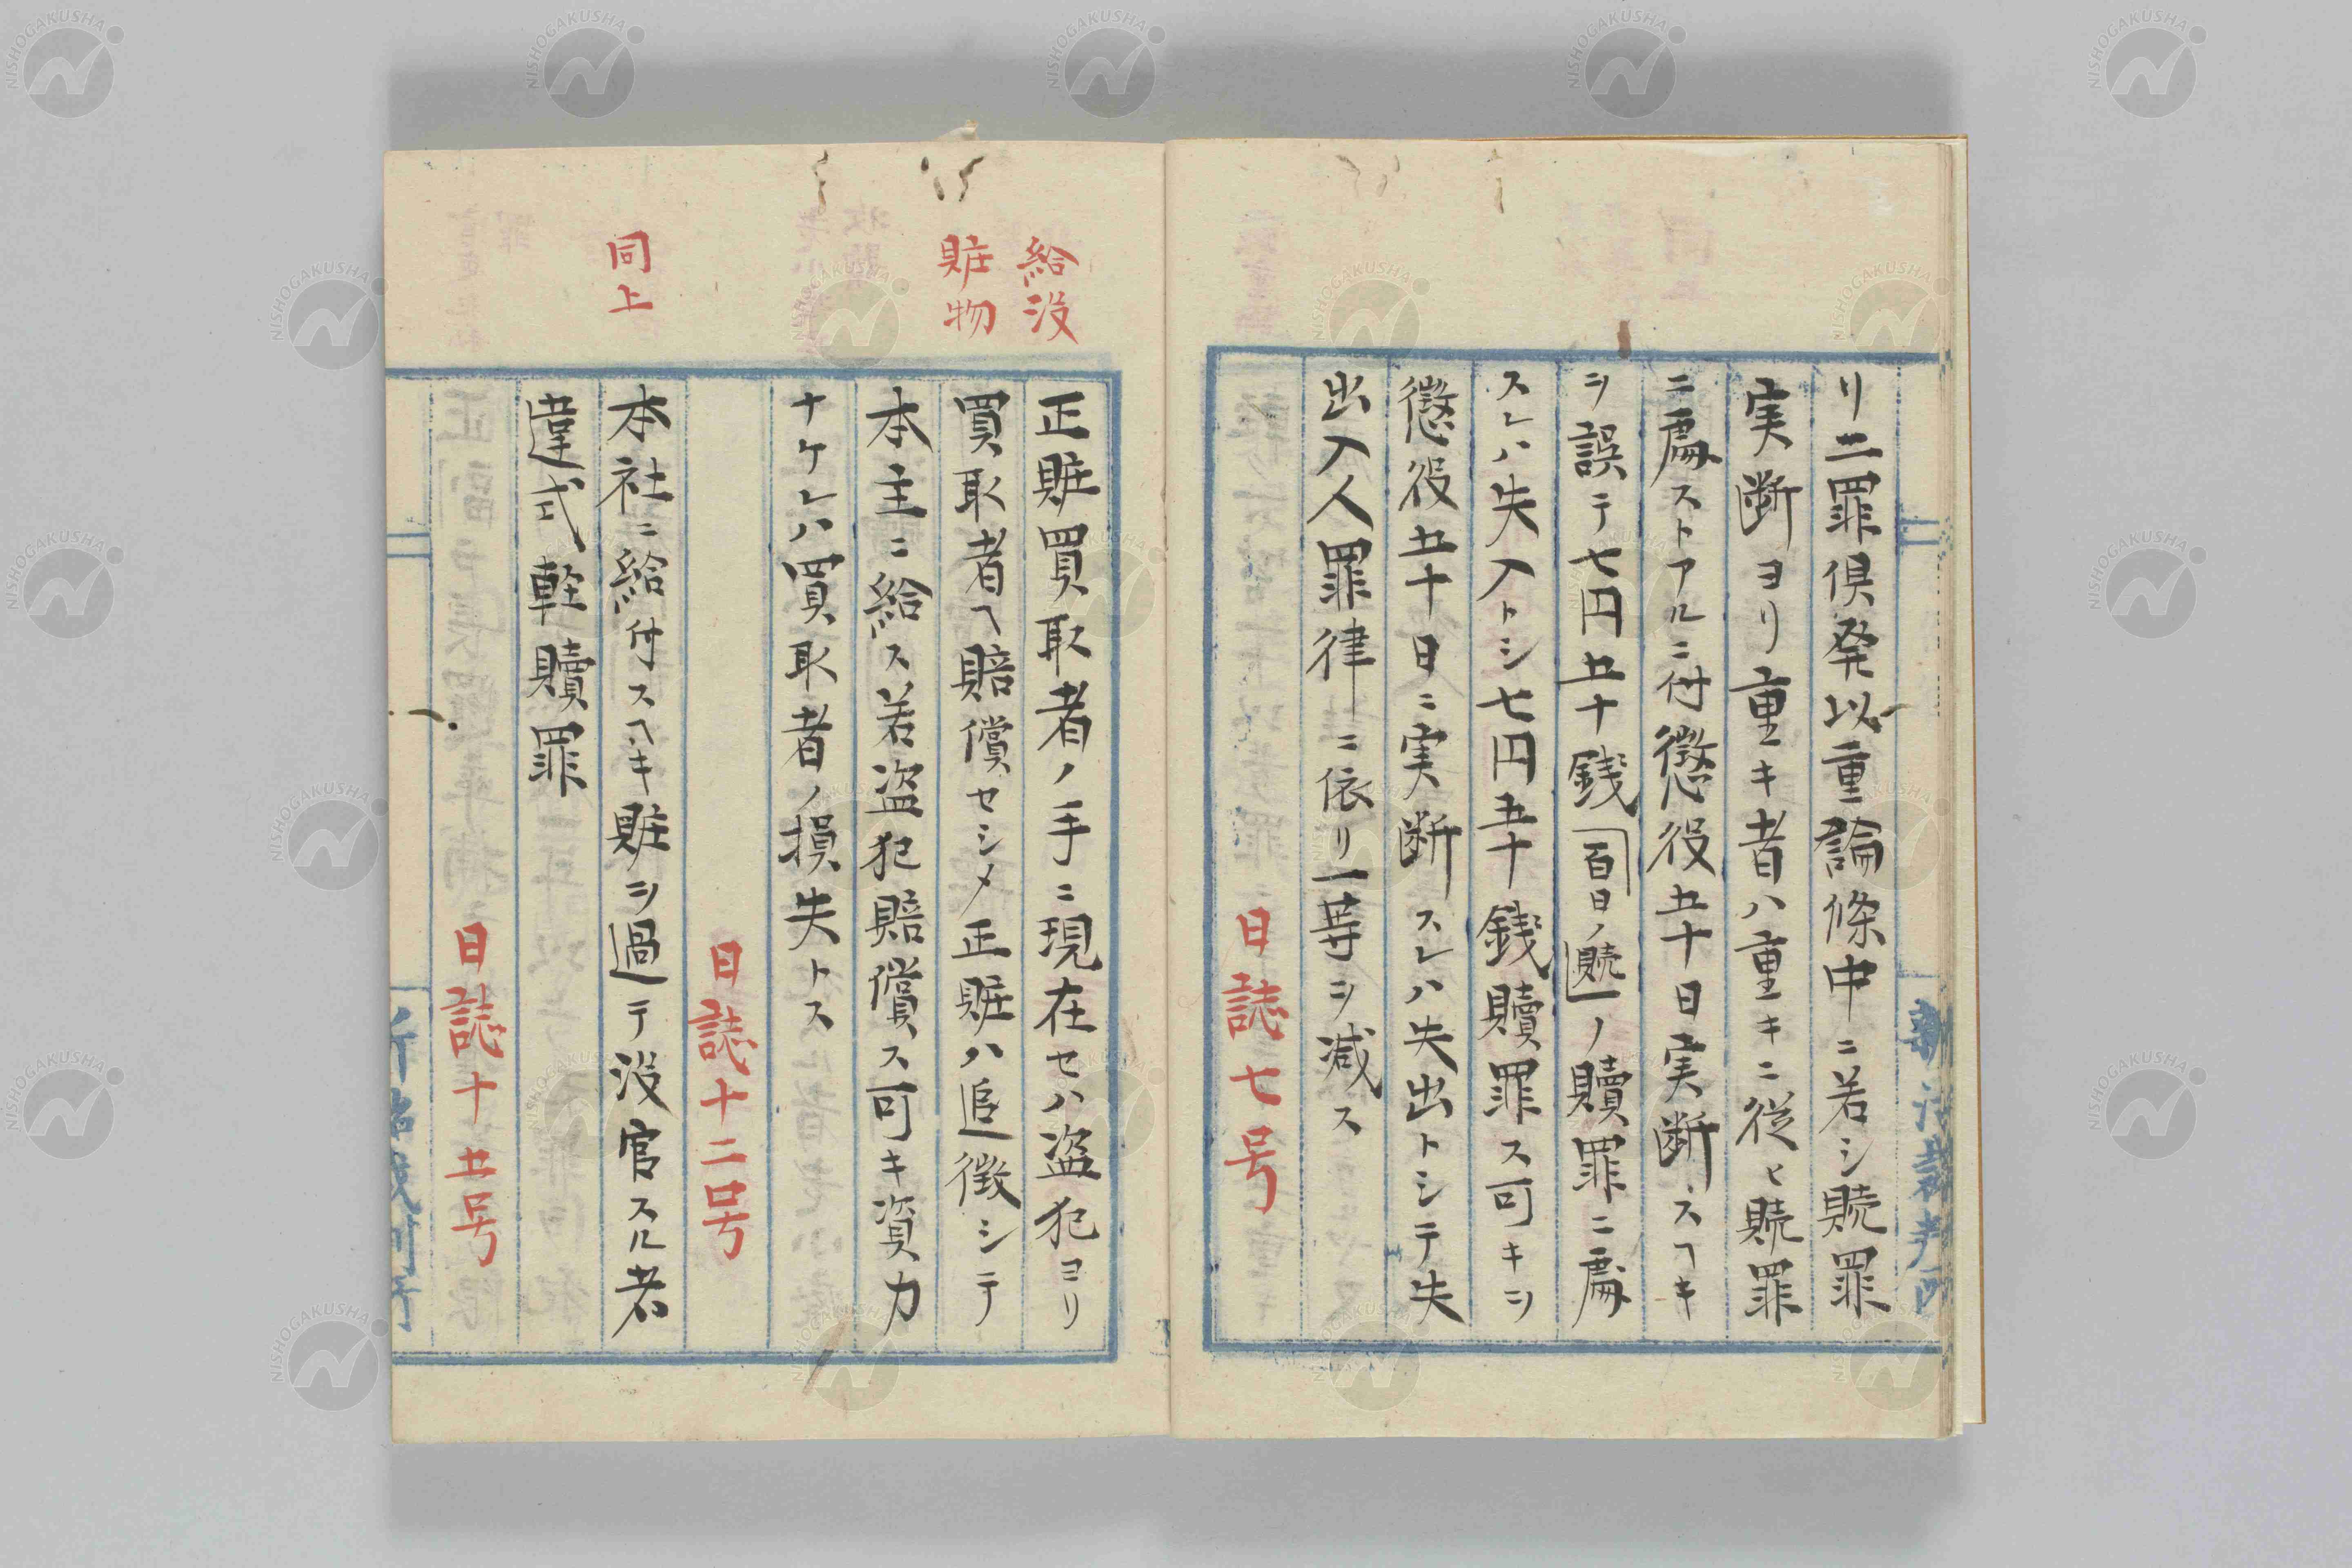 リ二罪倶発以重論條中ニ若シ贖罪
実断ヨリ重キ者ハ重キニ従ヒ贖罪
ニ處ストアルニ付懲役五十日実断スヘキ
ヲ誤テ七円五十銭百日ノ贖ノ贖罪ニ處
スレハ失入トシ七円五十銭贖罪ス可キヲ
懲役五十日ニ実断スレハ失出トシテ失
出入人罪律ニ依リ一等ヲ減ス
日誌七号
給没
贓物
正贓買取者ノ手ニ現在セハ盗犯ヨリ
買取者ヘ賠償セシメ正贓ハ追徴シテ
本主ニ給ス若盗犯賠償ス可キ資力
ナケレハ買取者ノ損失トス
日誌十二号
同上
本社ニ給付スヘキ贓ヲ過テ没官スル者
違式軽贖罪
日誌十五号
NISHOGAKUSHA